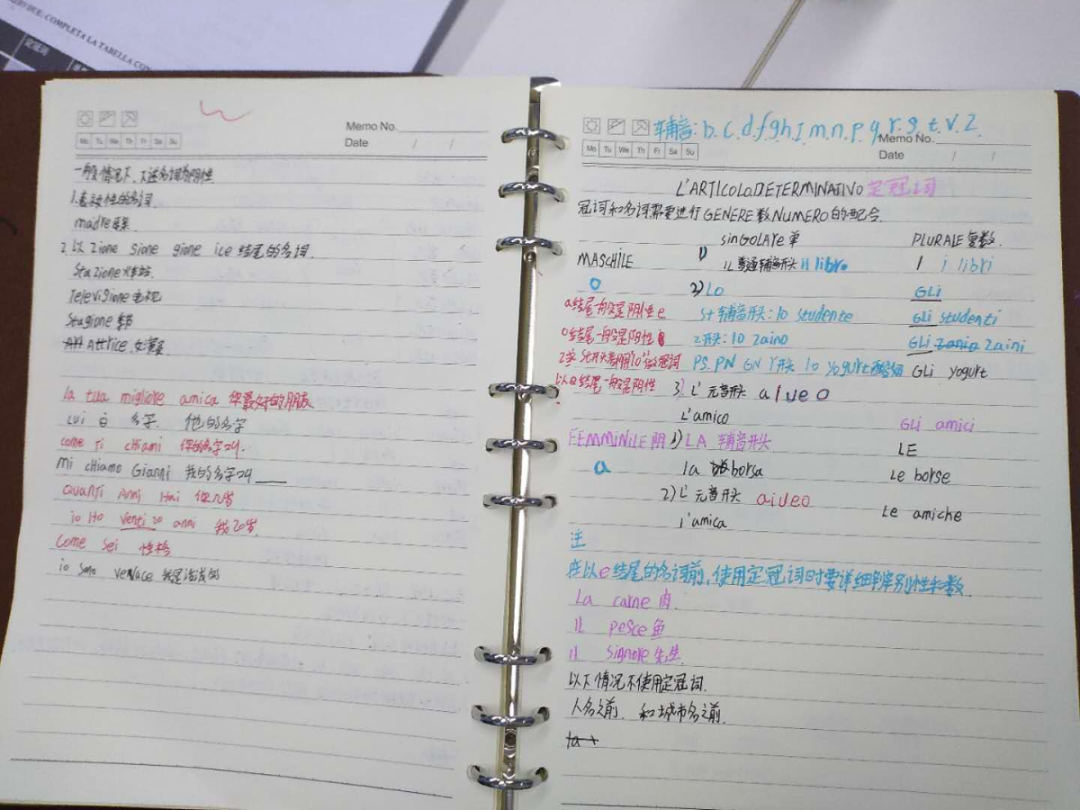 SERVIDUE: COMPLETA LA TABELLA CON
定冠词
Memo No.
Date / /
Mo Tu We Th Fr Sa Su
一般情况下,下述名词为阴性
1.表女性的名词.
madre母亲.
2.以 zione sione gione ice 结尾的名词.
Stazione 火车站.
Televisione 电视
Stagione 季节
Attrice.女演员.
la tua migliore amica 你最好的朋友
Lui è 名字. 他的名字
come ti chiami 你的名字叫.
mi chiamo Gianni 我的名字叫
Quanti Anni Hai 你几岁
io Ho venti 20 anni 我20岁.
Come Sei 性格
io sono vevace 我是活泼的
辅音: b.c.d.f.g.h.I.m.n.p.q.r.s.t.v.z.
Memo No.
Mo Tu We Th Fr Sa Su
Date / /
L'ARTICOLO.DETERMINATIVO 定冠词
冠词和名词需要进行 GENERE 数 NUMERO 的配合.
sinGOLARe 单 PLURALE 复数.
MASCHILE 1) IL 普通辅音开头 il libro I i libri
O 2) LO GLI
a结尾一般是阴性 e S+辅音开头: lo studente GLI studenti
o结尾一般是阳性 i z开头: lo zaino GLI zanio zaini
PS. PN GN Y开头 lo yogurt GLi yogurt
以e结尾一般是阴性 3. L' 元音开头 a I u e O
L'amico GLi amici
FEMMINiLE 阴 1) LA 辅音开头 LE
a la borsa Le borse
2) L' 元音开头 a i u e o
l'amica Le amiche
注
在以e结尾的名词前,使用定冠词时要详细判辨别性和数.
La carne 肉.
IL pesce 鱼
IL signore 先生.
以下情况不使用定冠词.
人名之前. 和城市名之前.